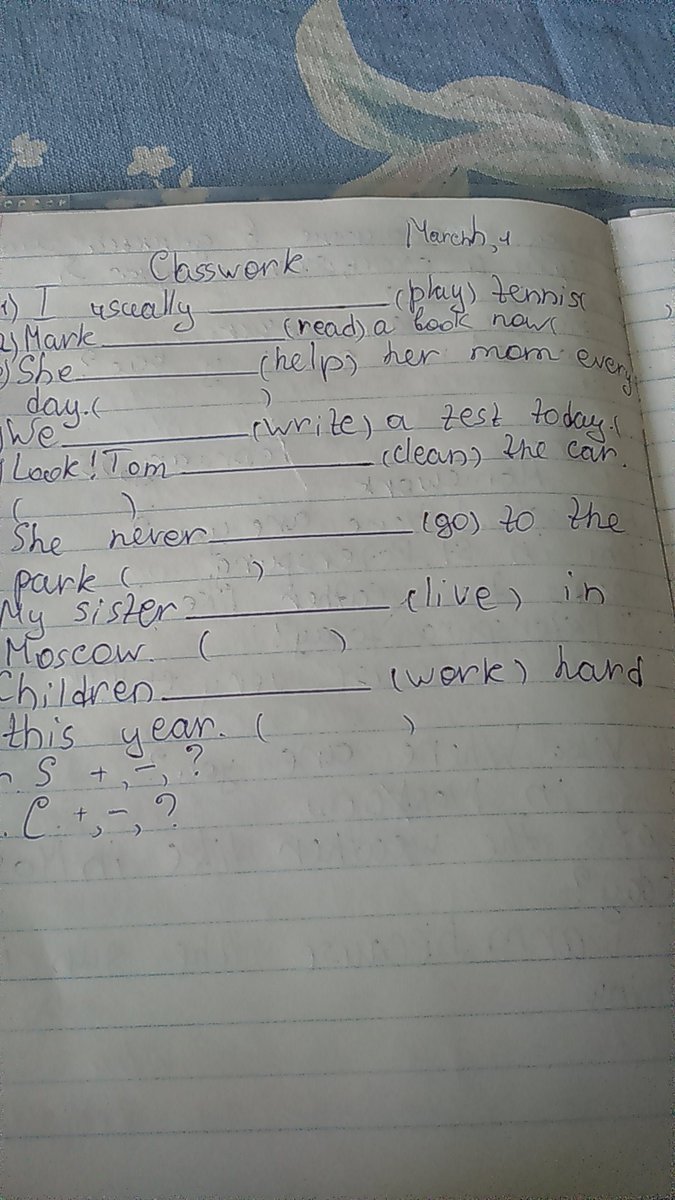 March, 1
Classwork.
1) I usually ________ (play) tennis(
2) Mark ________ (read) a book now(
) She ________ (help) her mom every
day.( )
) We ________ (write) a test today.(
) Look! Tom ________ (clean) the car.
( )
She never ________ (go) to the
park ( )
My sister ________ (live) in
Moscow. ( )
Children ________ (work) hard
this year. ( )
. S +, -, ?
. C. +, -, ?